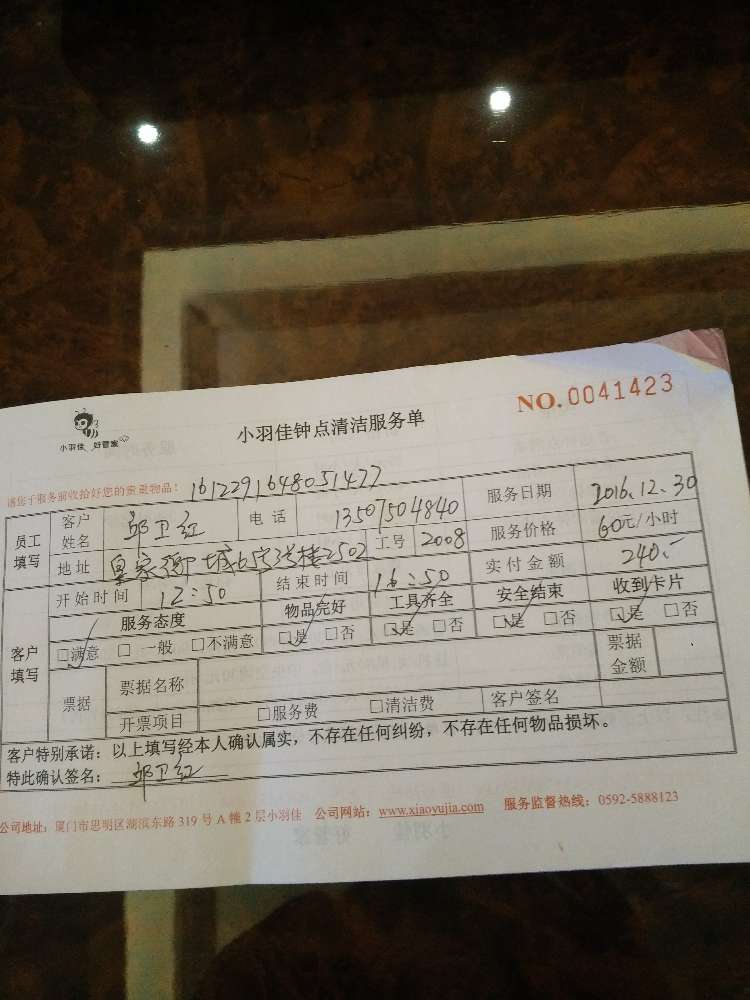 NO.0041423
小羽佳 好管家
小羽佳钟点清洁服务单
请您于服务前收拾好您的贵重物品：1612291648051477
员工填写 客户姓名 邱卫红 电话 13507504840 服务日期 2016.12.30
地址 皇家御城65号3号楼2502 工号 2008 服务价格 60元/小时
客户填写 开始时间 12:50 结束时间 16:50 实付金额 240.-
服务态度 物品完好 工具齐全 安全结束 收到卡片
□满意 □一般 □不满意 □是 □否 □是 □否 □是 □否 □是 □否
票据 票据名称 票据金额
开票项目 □服务费 □清洁费 客户签名
客户特别承诺：以上填写经本人确认属实，不存在任何纠纷，不存在任何物品损坏。
特此确认签名：邱卫红
公司地址：厦门市思明区湖滨东路319号A幢2层小羽佳 公司网站：www.xiaoyujia.com 服务监督热线：0592-5888123